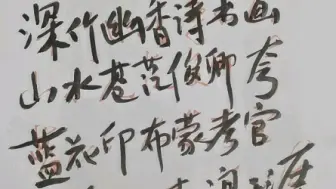 深竹幽香诗书画
山水苍茫俊卿夸
蓝花印布蒙考官